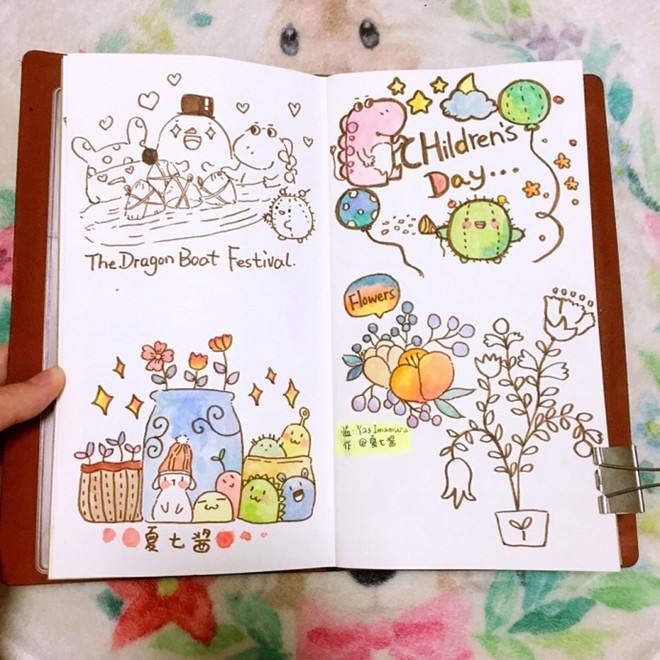 The Dragon Boat Festival.
夏七酱
CHildren's
Day...
Flowers
临: Yas Imamura
作 @夏七酱